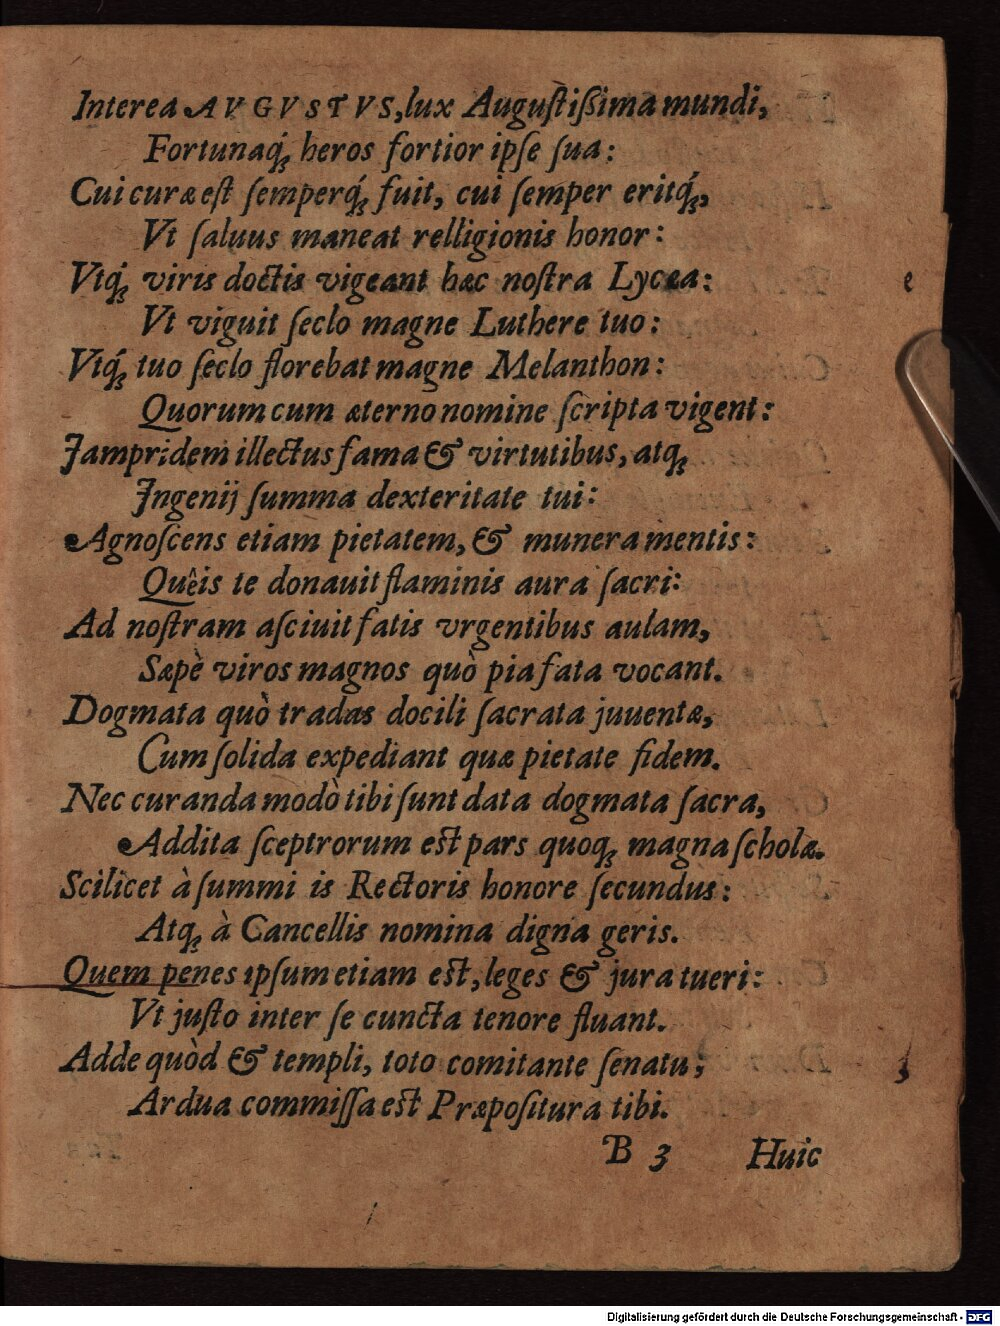 Interea AVGVSTVS, lux Augustißima mundi,
Fortunaq́; heros fortior ipſe ſua:
Cui curæ eſt ſemperq́; fuit, cui ſemper eritq́;,
Vt ſaluus maneat relligionis honor:
Vtq́; viris doctis vigeant hæc noſtra Lycæa:
Vt viguit ſeclo magne Luthere tuo:
Vtq́; tuo ſeclo florebat magne Melanthon:
Quorum cum æterno nomine ſcripta vigent:
Jampridem illectus fama & virtutibus, atq;
Jngenij ſumma dexteritate tui:
Agnoſcens etiam pietatem, & munera mentis:
Quêis te donauit flaminis aura ſacri:
Ad noſtram aſciuit fatis vrgentibus aulam,
Sæpè viros magnos quò pia fata vocant.
Dogmata quò tradas docili ſacrata juuentæ,
Cum ſolida expediant quæ pietate fidem.
Nec curanda modò tibi ſunt data dogmata ſacra,
Addita ſceptrorum eſt pars quoq; magna ſcholæ.
Scilicet à ſummi is Rectoris honore ſecundus:
Atq; à Cancellis nomina digna geris.
Quem penes ipſum etiam eſt, leges & jura tueri:
Vt juſto inter ſe cuncta tenore fluant.
Adde quòd & templi, toto comitante ſenatu,
Ardua commiſſa eſt Præpoſitura tibi.
B 3 Huic
Digitalisierung gefördert durch die Deutsche Forschungsgemeinschaft - DFG